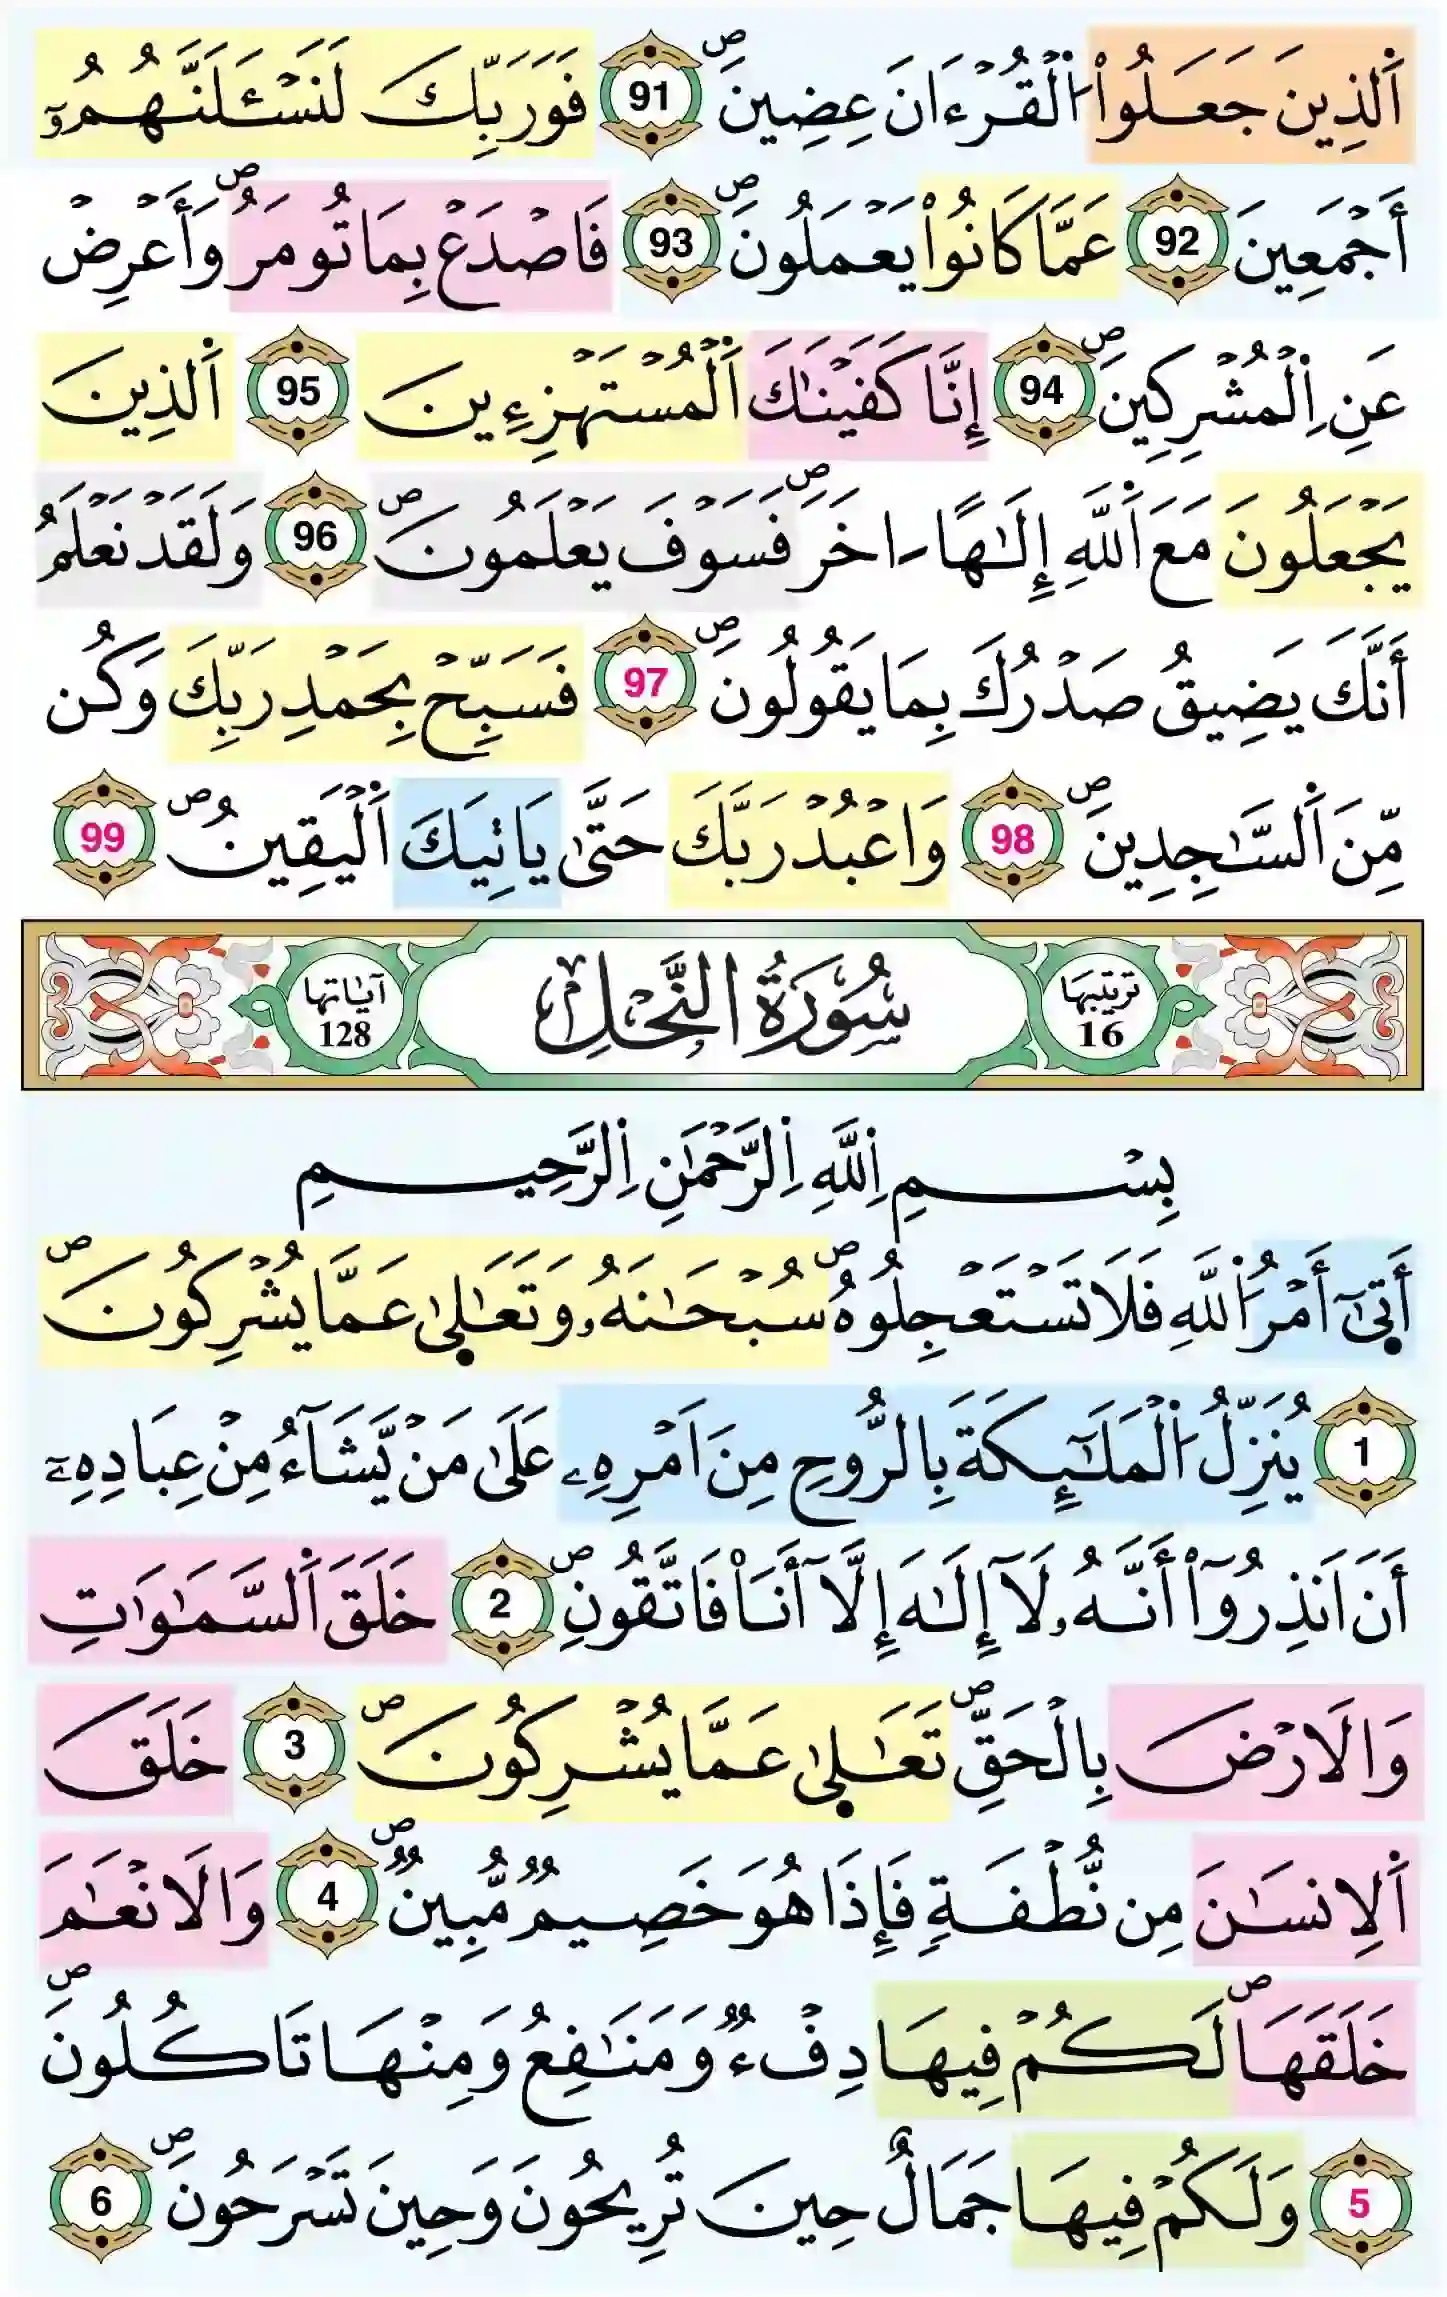 اَ۬لذِينَ جَعَلُواْ اُ۬لْقُرْءَانَ عِضِينَۖ 91 فَوَرَبِّكَ لَنَسْـَٔلَنَّهُمُۥٓ
أَجْمَعِينَ 92 عَمَّا كَانُواْ يَعْمَلُونَۖ 93 فَاصْدَعْ بِمَا تُومَرُۖ وَأَعْرِضْ
عَنِ اِ۬لْمُشْرِكِينَۖ 94 إِنَّا كَفَيْنَٰكَ اَ۬لْمُسْتَهْزِءِينَ 95 اَ۬لذِينَ
يَجْعَلُونَ مَعَ اَ۬للَّهِ إِلَٰهاً اٰخَرَۖ فَسَوْفَ يَعْلَمُونَۖ 96 وَلَقَدْ نَعْلَمُ
أَنَّكَ يَضِيقُ صَدْرُكَ بِمَا يَقُولُونَۖ 97 فَسَبِّحْ بِحَمْدِ رَبِّكَ وَكُن
مِّنَ اَ۬لسَّٰجِدِينَۖ 98 وَاعْبُدْ رَبَّكَ حَتَّىٰ يَاتِيَكَ اَ۬لْيَقِينُۖ 99
تَرْتِيبُهَا 16 سُورَةُ النَّحْلِ آيَاتُهَا 128
بِسْمِ اِ۬للَّهِ اِ۬لرَّحْمَٰنِ اِ۬لرَّحِيمِ
أَتَىٰٓ أَمْرُ اُ۬للَّهِ فَلَا تَسْتَعْجِلُوهُۖ سُبْحَٰنَهُۥ وَتَعَٰلَىٰ عَمَّا يُشْرِكُونَۖ
1 يُنَزِّلُ اُ۬لْمَلَٰٓئِكَةَ بِالرُّوحِ مِنَ اَمْرِهِۦ عَلَىٰ مَنْ يَّشَآءُ مِنْ عِبَادِهِۦٓ
أَنَ اَنذِرُوٓاْ أَنَّهُۥ لَآ إِلَٰهَ إِلَّآ أَنَا فَاتَّقُونِۖ 2 خَلَقَ اَ۬لسَّمَٰوَٰتِ
وَالَارْضَ بِالْحَقِّۖ تَعَٰلَىٰ عَمَّا يُشْرِكُونَۖ 3 خَلَقَ
اَ۬لِانسَٰنَ مِن نُّطْفَةٍ فَإِذَا هُوَ خَصِيمٌ مُّبِينٌۖ 4 وَالَانْعَٰمَ
خَلَقَهَاۖ لَكُمْ فِيهَا دِفْءٌ وَمَنَٰفِعُ وَمِنْهَا تَاكُلُونَۖ
5 وَلَكُمْ فِيهَا جَمَالٌ حِينَ تُرِيحُونَ وَحِينَ تَسْرَحُونَۖ 6